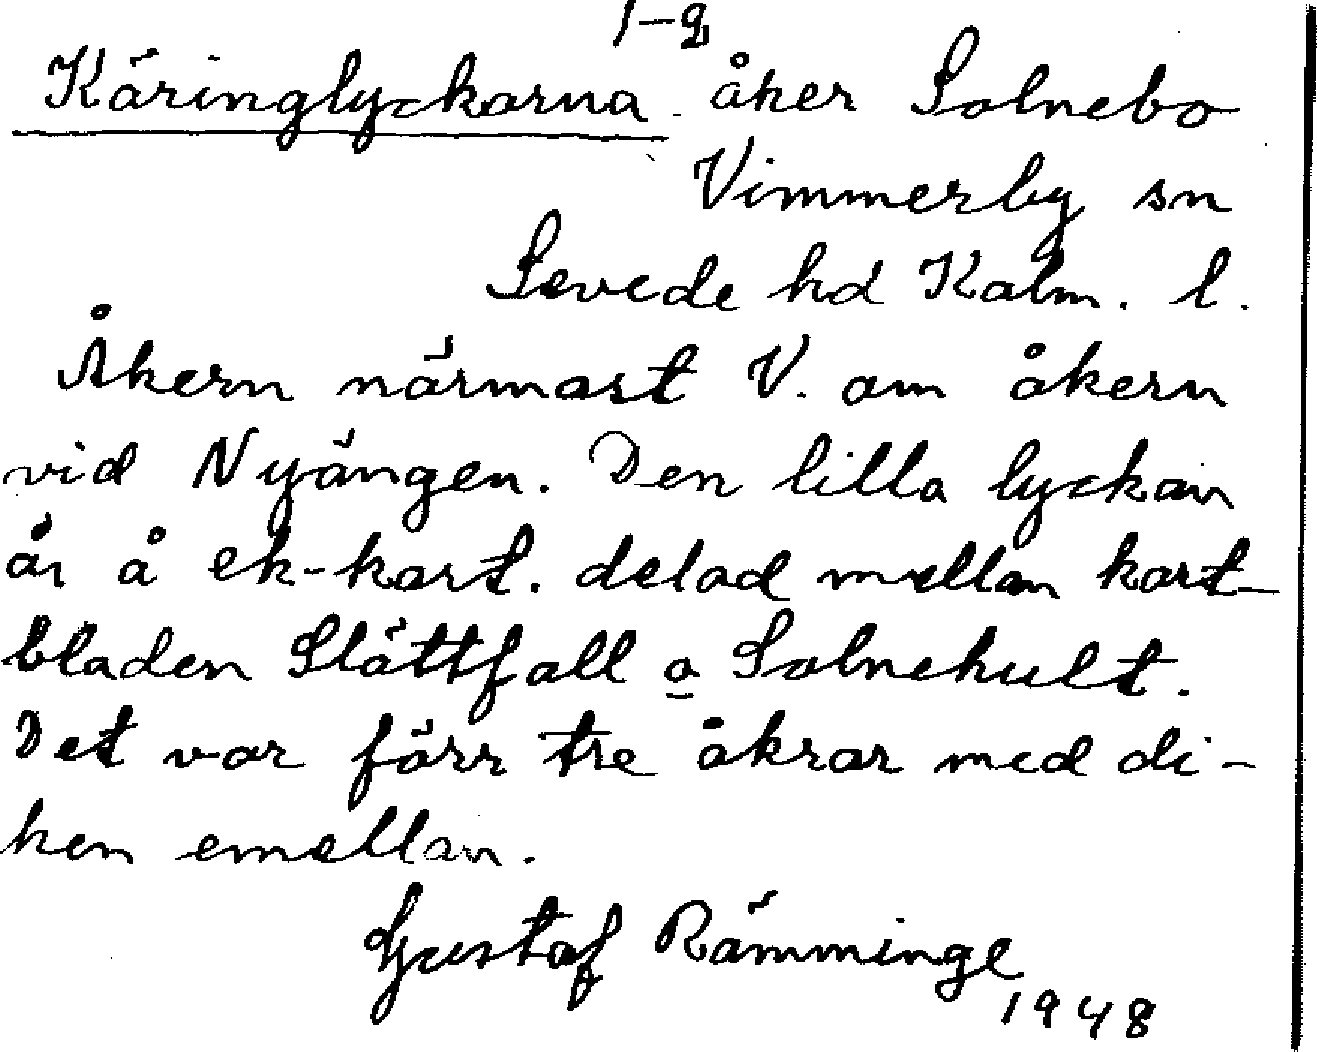 1-2
Käringlyckorna åker Solnebo
Vimmerby sn
Sevede hd Kalm. l.
Åkern närmast V. om åkern
vid Nyängen. Den lilla lyckan
är å ek-kart. delad mellan kart-
bladen Slättfall o Solnehult.
Det var förr tre åkrar med di-
ken emellan.
Gustaf Rämminge
1948